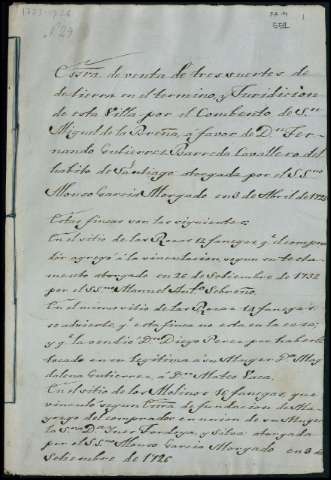 1723-1726
Nº 29
1
Essra. de venta de tres suertes de
de tierra en el termino, y Juridicion
de esta Villa por el Combento de Sn.
Miguel de la Breña, a favor de Dn. Fer-
nando Gutierres Barreda Cavallero del
habito de Santiago otorgada por el SSno.
Alonso Garcia Morgado en 3 de Abril de 1723
Estas fincas son las siguientes:
En el sitio de las Rozas 12 fanegas qe. el compra-
dor agregó a la vinculacion segun su testa-
mento otorgado en 26 de Setiembre de 1732
por el SSno. Manuel Anto. Sebreño.
En el mismo sitio de las Rozas 14 fanegas:
se advierte qe. esta finca no esta en la casa;
y qe. la vendió Dn. Diego Perez por haberle
tocado en su legitima a su Muger Da. Mag-
dalena Gutierrez a Dn. Mateo Vaca.
En el sitio de los Molinos 10 fanegas que
vinculo segun Essra. de fundacion de Ma-
yorazgo del comprador en union de su Muger
la Sra. Da. Ines Tordoya, y Silva otorgada
por el SSno. Alonso Garcia Morgado en 3 de
Setiembre de 1726